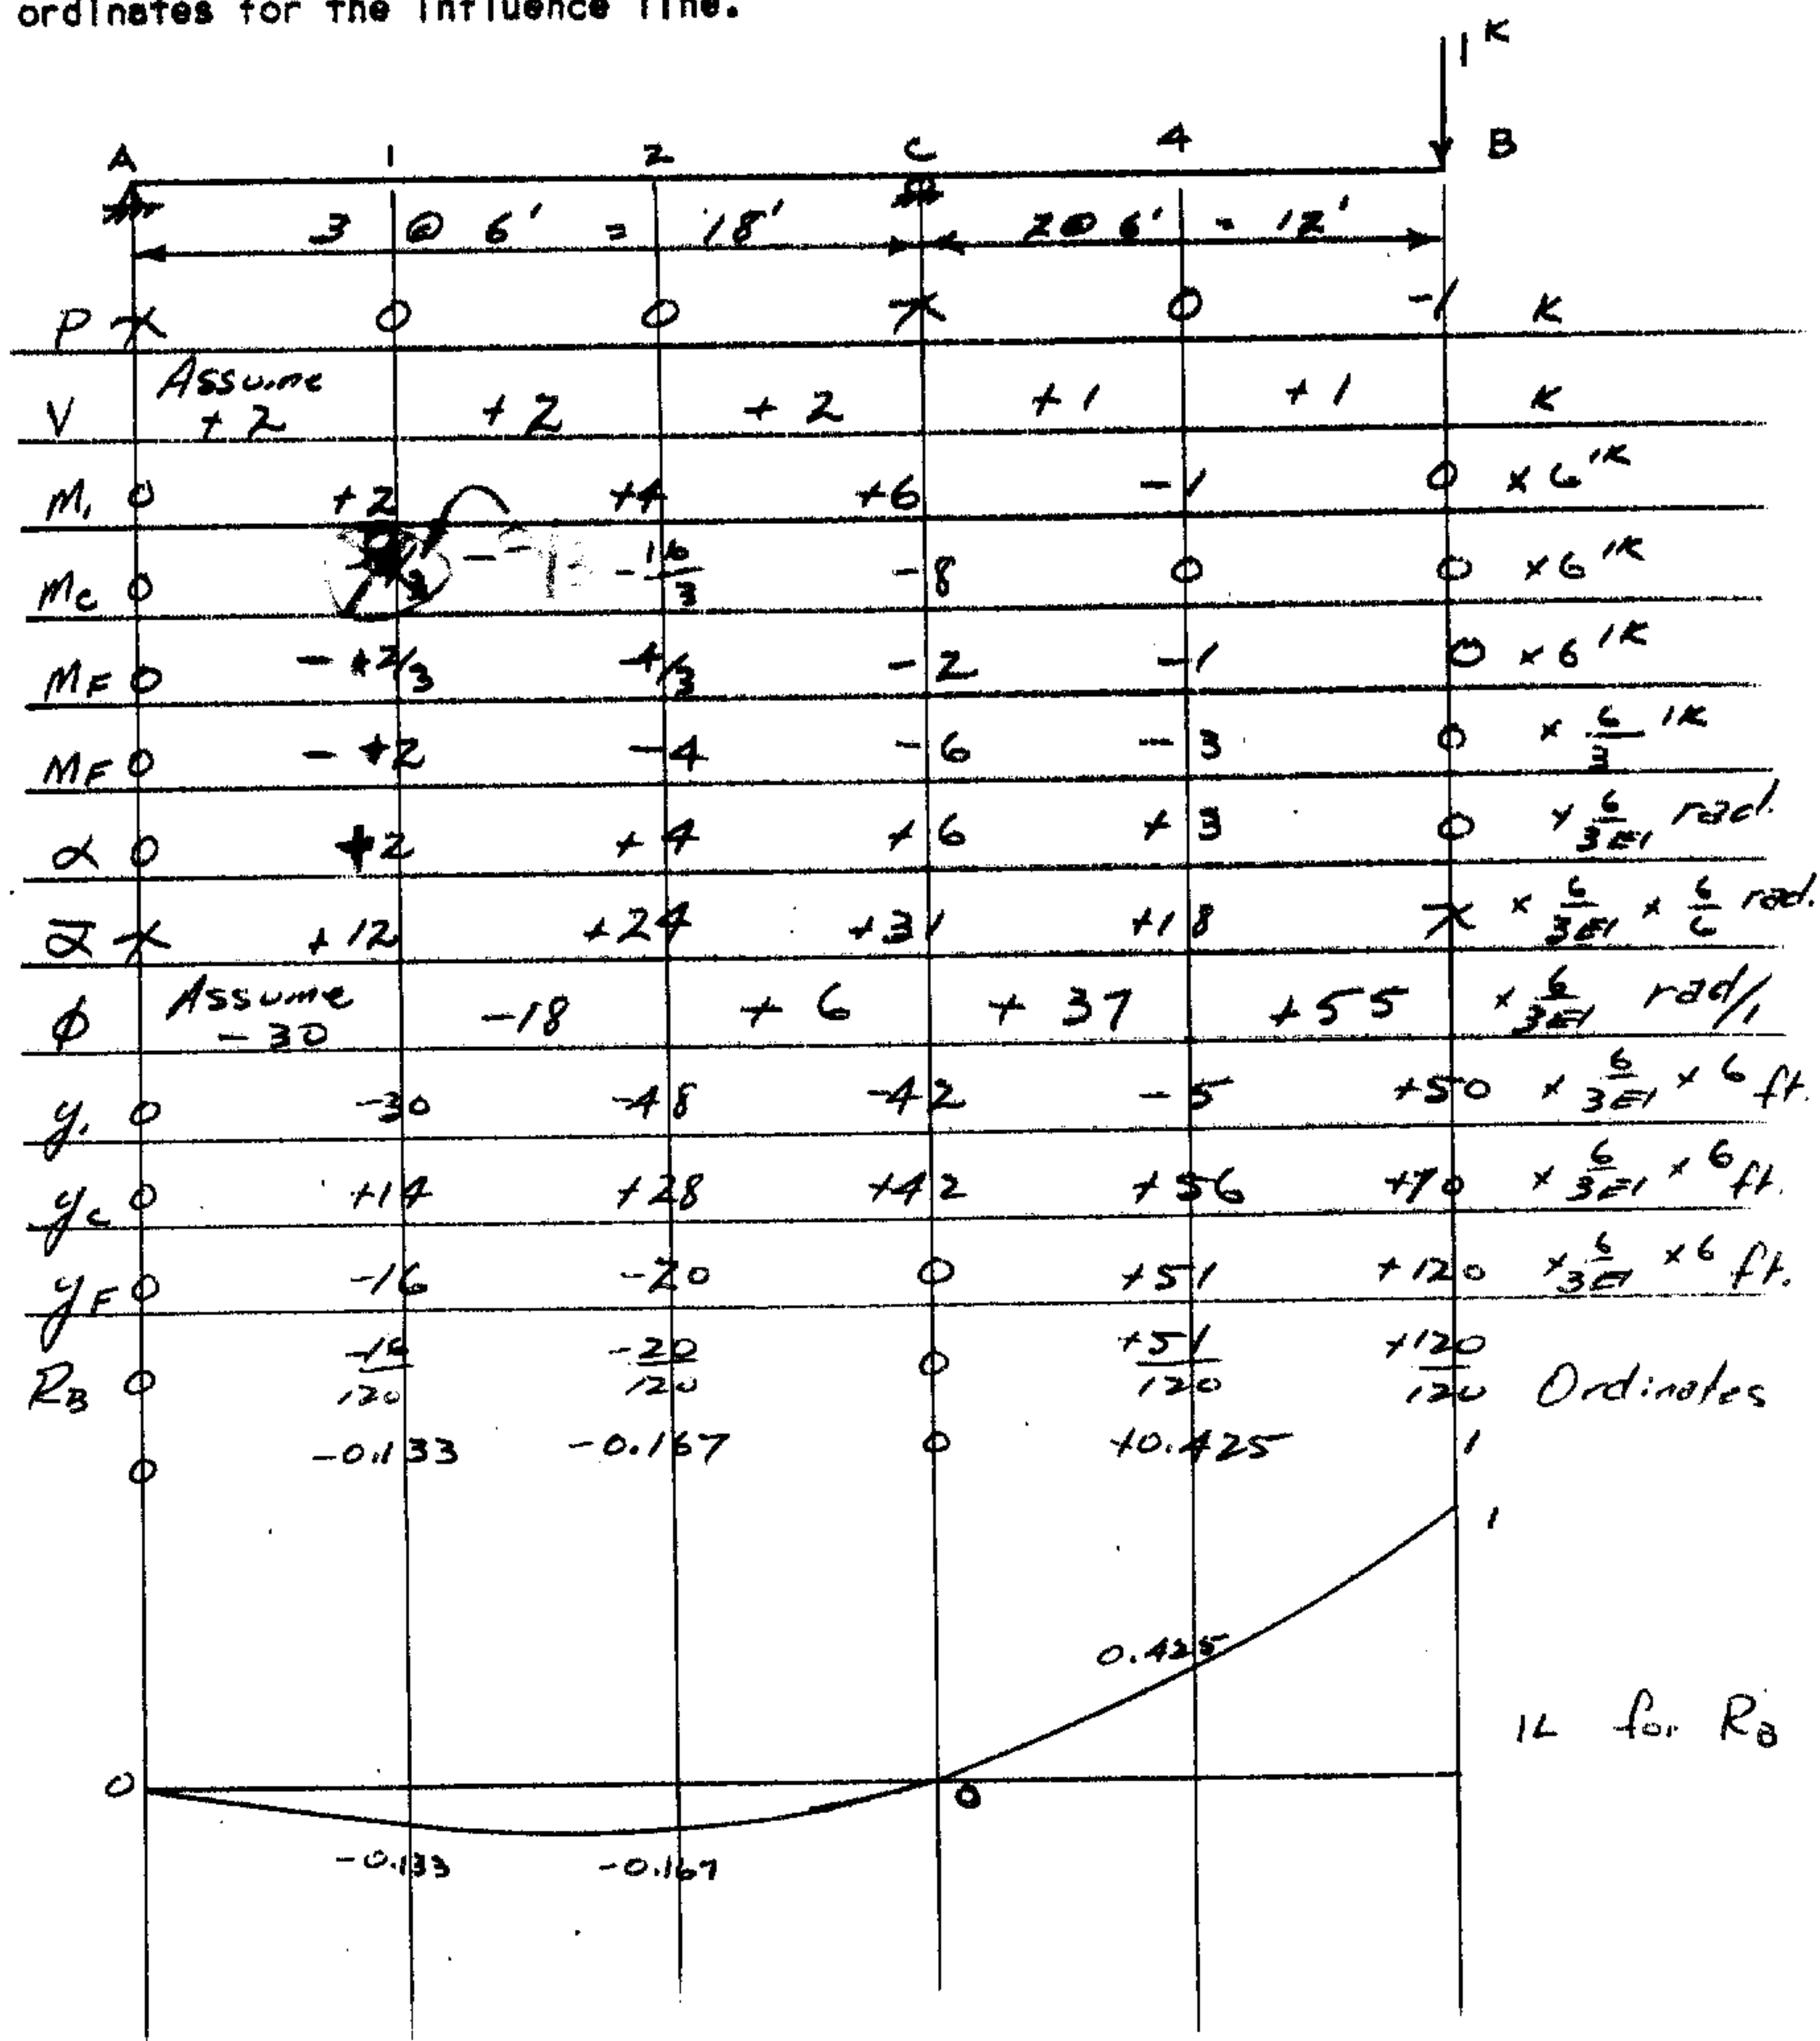 ordinates for the influence line.
1 K
A 1 2 C 4 B
3 @ 6' = 18' 2@ 6' = 12'
P x 0 0 x 0 -1 K
Assume
V +2 +2 +2 +1 +1 K
M₁ 0 +2 +4 +6 -1 0 x 6 'K
Mc 0 -16/3 -8 0 0 x 6 'K
MF 0 - +2/3 -4/3 -2 -1 0 x 6 'K
MF 0 - +2 -4 -6 -3 0 x 6/3 'K
α 0 +2 +4 +6 +3 0 x 6/3EI rad.
ᾱ x +12 +24 +31 +18 x x 6/3EI x 6/6 rad.
Assume
ϕ -30 -18 +6 +37 +55 x 6/3EI rad/1
y₁ 0 -30 -48 -42 -5 +50 x 6/3EI x 6 ft.
yc 0 +14 +28 +42 +56 +70 x 6/3EI x 6 ft.
yF 0 -16 -20 0 +51 +120 x 6/3EI x 6 ft.
RB 0 -16/120 -20/120 0 +51/120 +120/120 Ordinates
0 -0.133 -0.167 0 +0.425 1
1
0.425
IL for RB
0 0
-0.133 -0.167